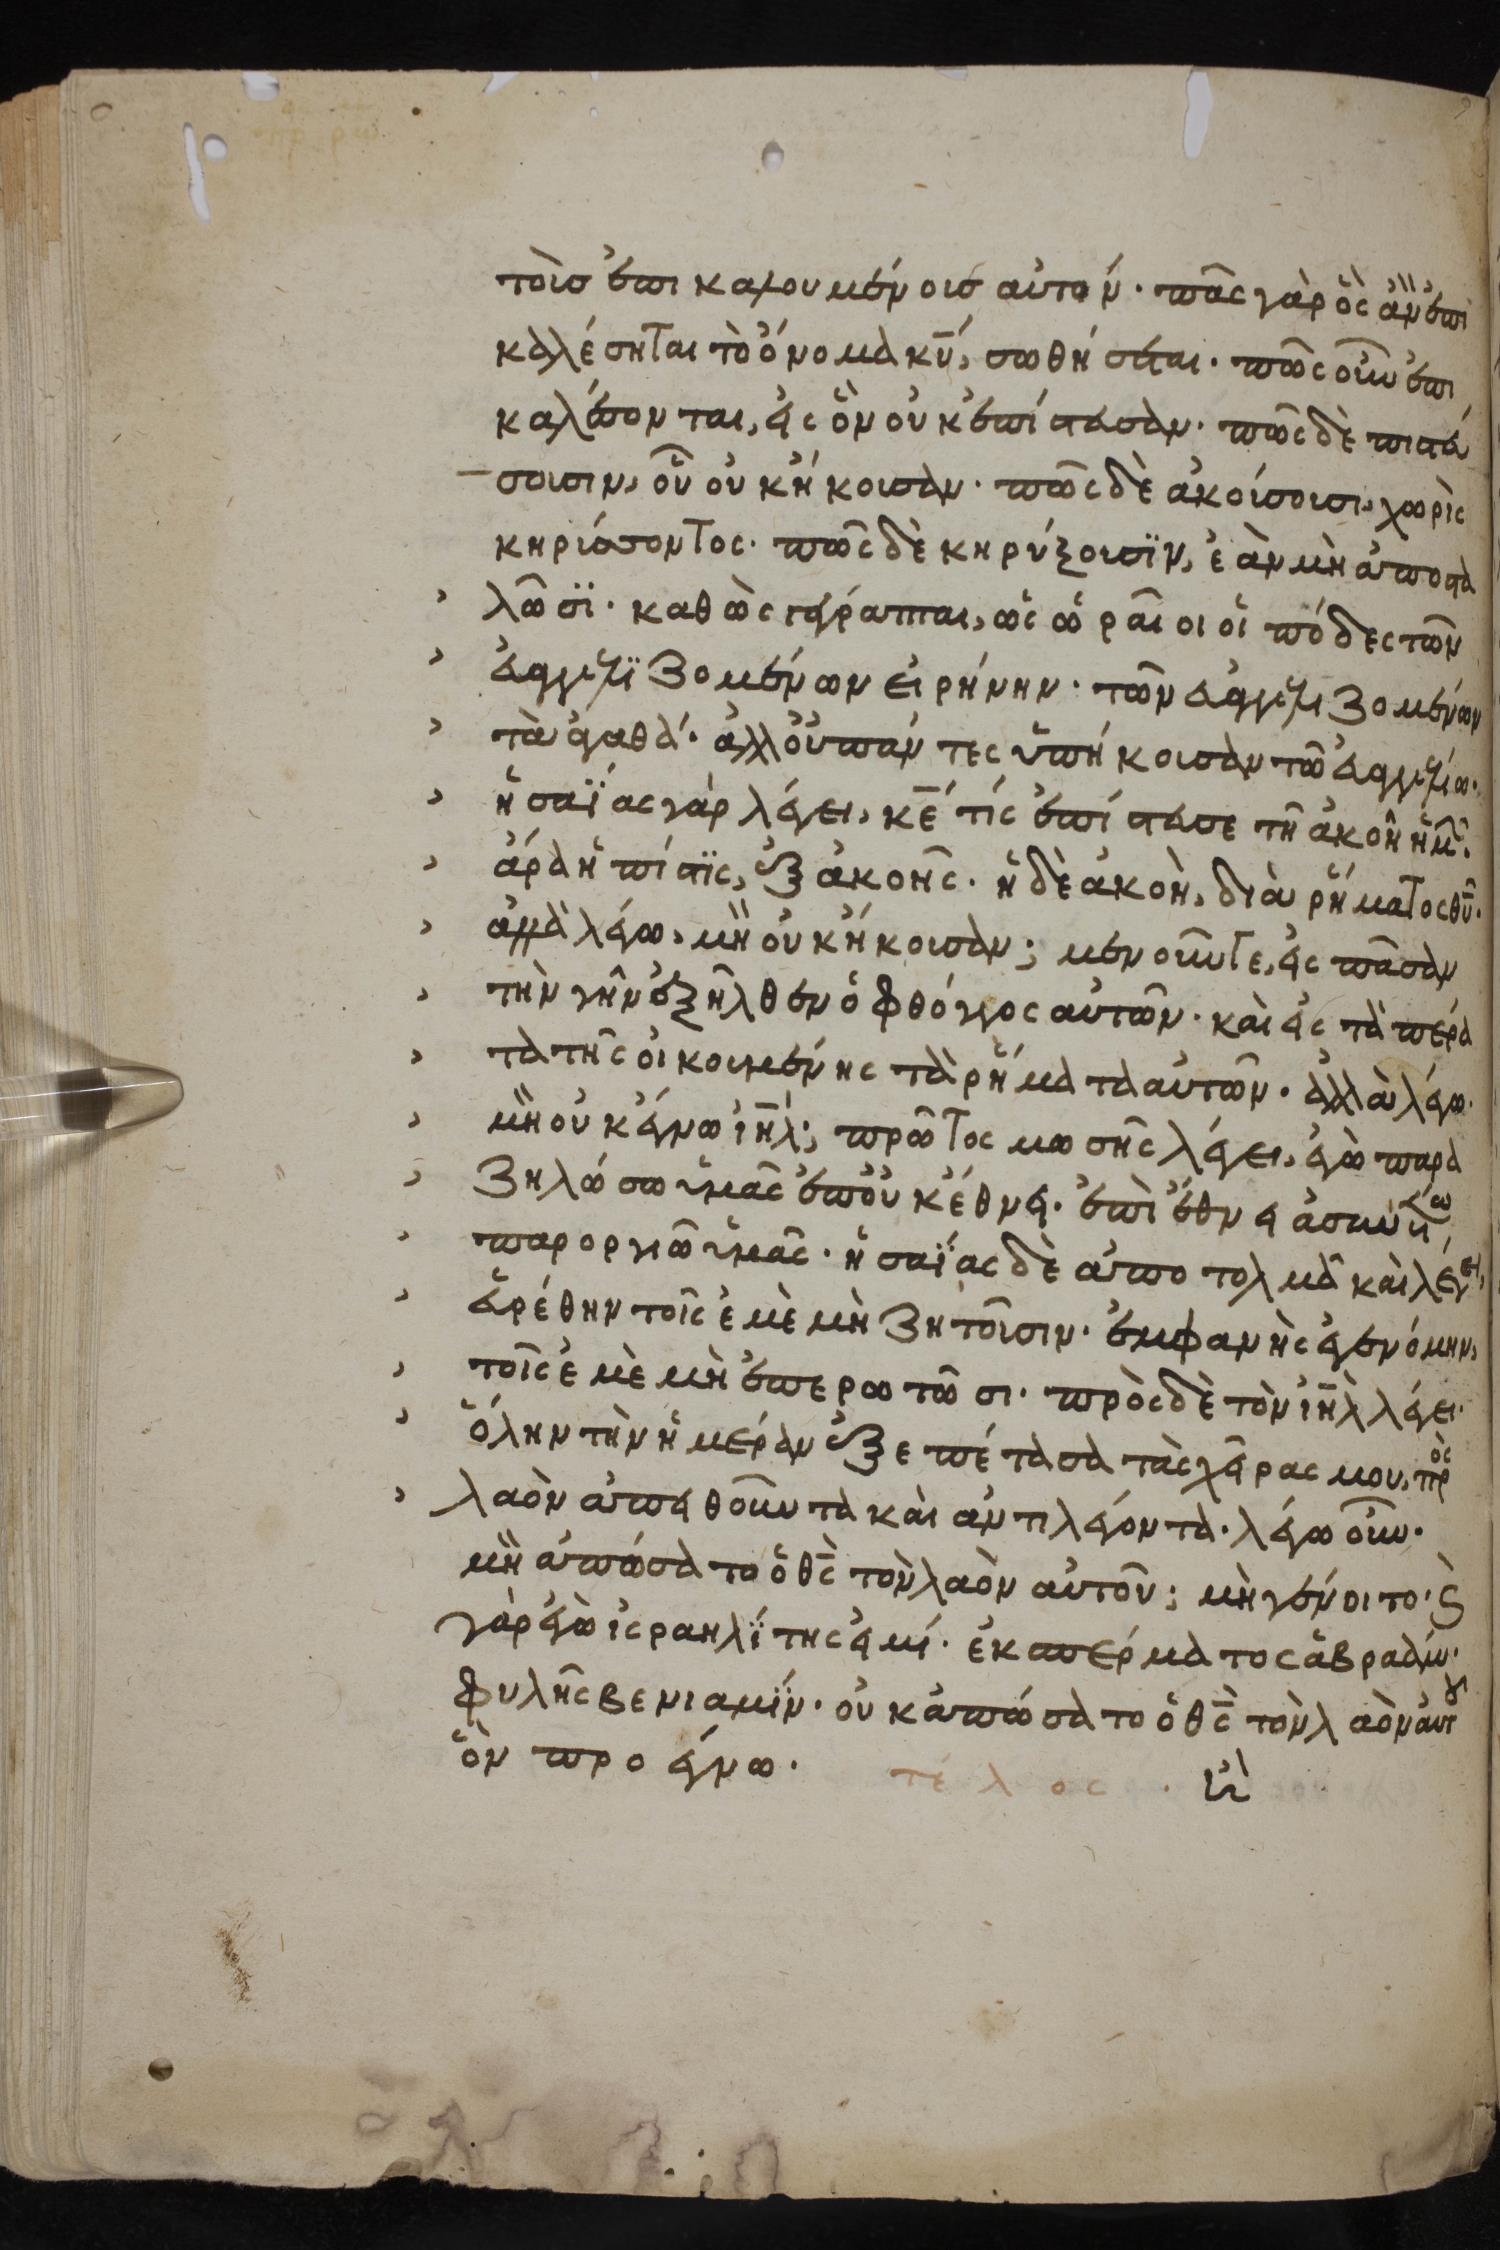 τοῖσ ἐπικαλουμένοισ αὐτόν· πᾶς γὰρ ὃς ἂν ἐπι
καλέσηται τὸ ὄνομα κ̅υ̅, σωθήσεται· πῶς οὖν ἐπι
καλέσονται, εἰς ὃν οὐκ ἐπίστευσαν· πῶς δὲ πιστεύ
σουσιν, οὗ οὐκ ἤκουσαν· πῶς δὲ ἀκούσουσι, χωρὶς
κηρύσσοντος· πῶς δὲ κηρύξουσϊν, ἐὰν μὴ ἀποστα
λῶσϊ· καθὼς γέγραπται, ὡς ὡραῖοι οἱ πόδες τῶν
εὐαγγελϊζομένων εἰρήνην· τῶν εὐαγγελιζομένων
τὰ ἀγαθά· ἀλλ' οὐ πάντες ὑπήκουσαν τῶ εὐαγγελίω·
ἠσαΐας γὰρ λέγει, κ̅ε̅ τίς ἐπίστευσε τῆ ἀκοῆ ἡμῶν·
ἄρα ἡ πίστϊς, ἐξ ἀκοῆς· ἡ δὲ ἀκοὴ, διὰ ῥήματος θ̅υ̅·
ἀλλὰ λέγω, μὴ οὐκ ἤκουσαν; μενοῦνγε, εἰς πᾶσαν
τὴν γῆν ἐξῆλθεν ὁ φθόγγος αὐτῶν· καὶ εἰς τὰ πέρα
τα τῆς οἰκουμένης τὰ ῥήματα αὐτῶν· ἀλλὰ λέγω·
μὴ οὐκ ἔγνω ἰ̅η̅λ̅; πρῶτος μωσῆς λέγει, ἐγὼ παρα
ζηλώσω ὑμᾶς ἐπ' οὐκ ἔθνει· ἐπὶ ἔθνει ἀσυνέτω
παροργιῶ ὑμᾶς· ἠσαΐας δὲ ἀποτολμᾶ καὶ λέγει,
εὑρέθην τοῖς ἐμὲ μὴ ζητοῦσιν· ἐμφανὴς ἐγενόμην,
τοῖς ἐμὲ μὴ ἐπερωτῶσι· πρὸς δὲ τὸν ἰ̅η̅λ̅ λέγει·
ὅλην τὴν ἡμέραν ἐξεπέτασα τὰς χεῖρας μου, πρὸς
λαὸν ἀπειθοῦντα καὶ ἀντιλέγοντα· λέγω οὖν·
μὴ ἀπώσατο ὁ θ̅ς̅ τὸν λαὸν αὐτοῦ; μὴ γένοιτο· καὶ
γὰρ ἐγὼ ἰσραηλΐτης εἰμί· ἐκ σπέρματος ἀβραάμ·
φυλῆς βενιαμΐν· οὐκ ἀπώσατο ὁ θ̅ς̅ τὸν λαὸν αὐτοῦ
ὃν προέγνω· τέλος·